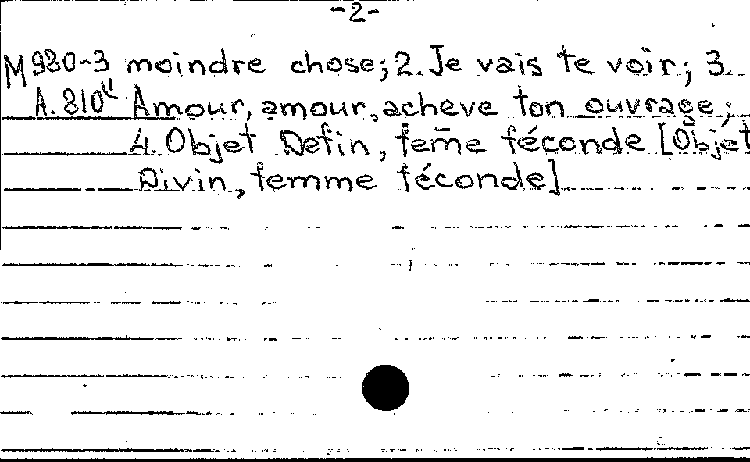 -2-
M980-3 moindre chose; 2. Je vais te voir; 3.
A.810u Amour, amour, acheve ton ouvrage;
4. Objet Defin, feme féconde [Objet
Divin, femme féconde]